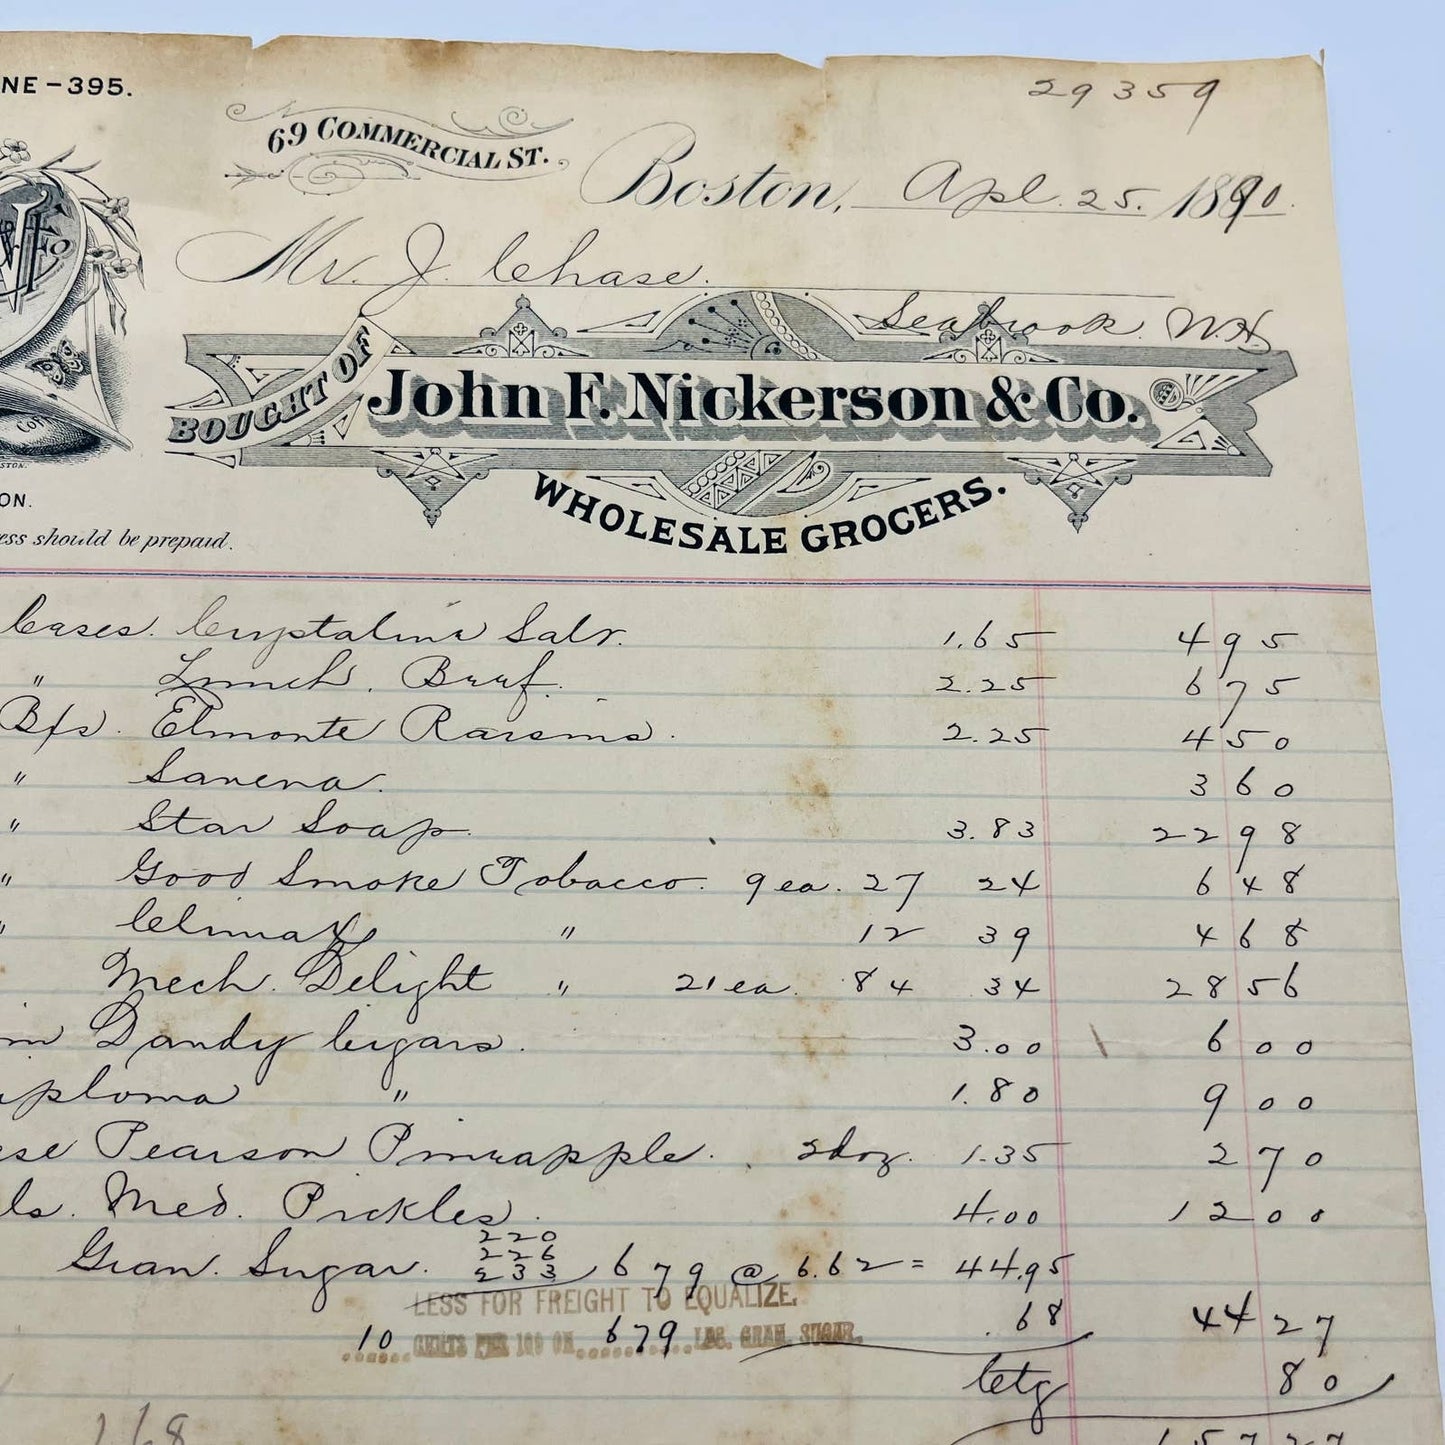 NE-395.
29359
69 COMMERCIAL ST.
Boston, Apl. 25. 1890.
Mr. J. Chase.
Seabrook N.H
BOUGHT OF
John F. Nickerson & Co.
WHOLESALE GROCERS.
STON.
ON.
ess should be prepaid.
Cases. Crystalina Salt. 1.65 4 95
" Lunch. Beef. 2.25 6 75
Bxs. Elmonte Raisins. 2.25 4 50
" Savena. 3 60
" Star Soap. 3.83 22 98
" Good Smoke Tobacco. 9 ea. 27 24 6 48
" Climax " 12 39 4 68
Mech. Delight " 21 ea. 84 34 28 56
m Dandy Cigars. 3.00 6 00
iploma " 1.80 9 00
se Pearson Pineapple. 2 doz. 1.35 2 70
ls. Med. Pickles. 4.00 12 00
220
226
Gran. Sugar. 233 679 @ 6.62 = 44.95
LESS FOR FREIGHT TO EQUALIZE. .68 44 27
10 CENTS PER 100 ON 679 LBS. GRAN. SUGAR.
Ctg 80
168
157 27